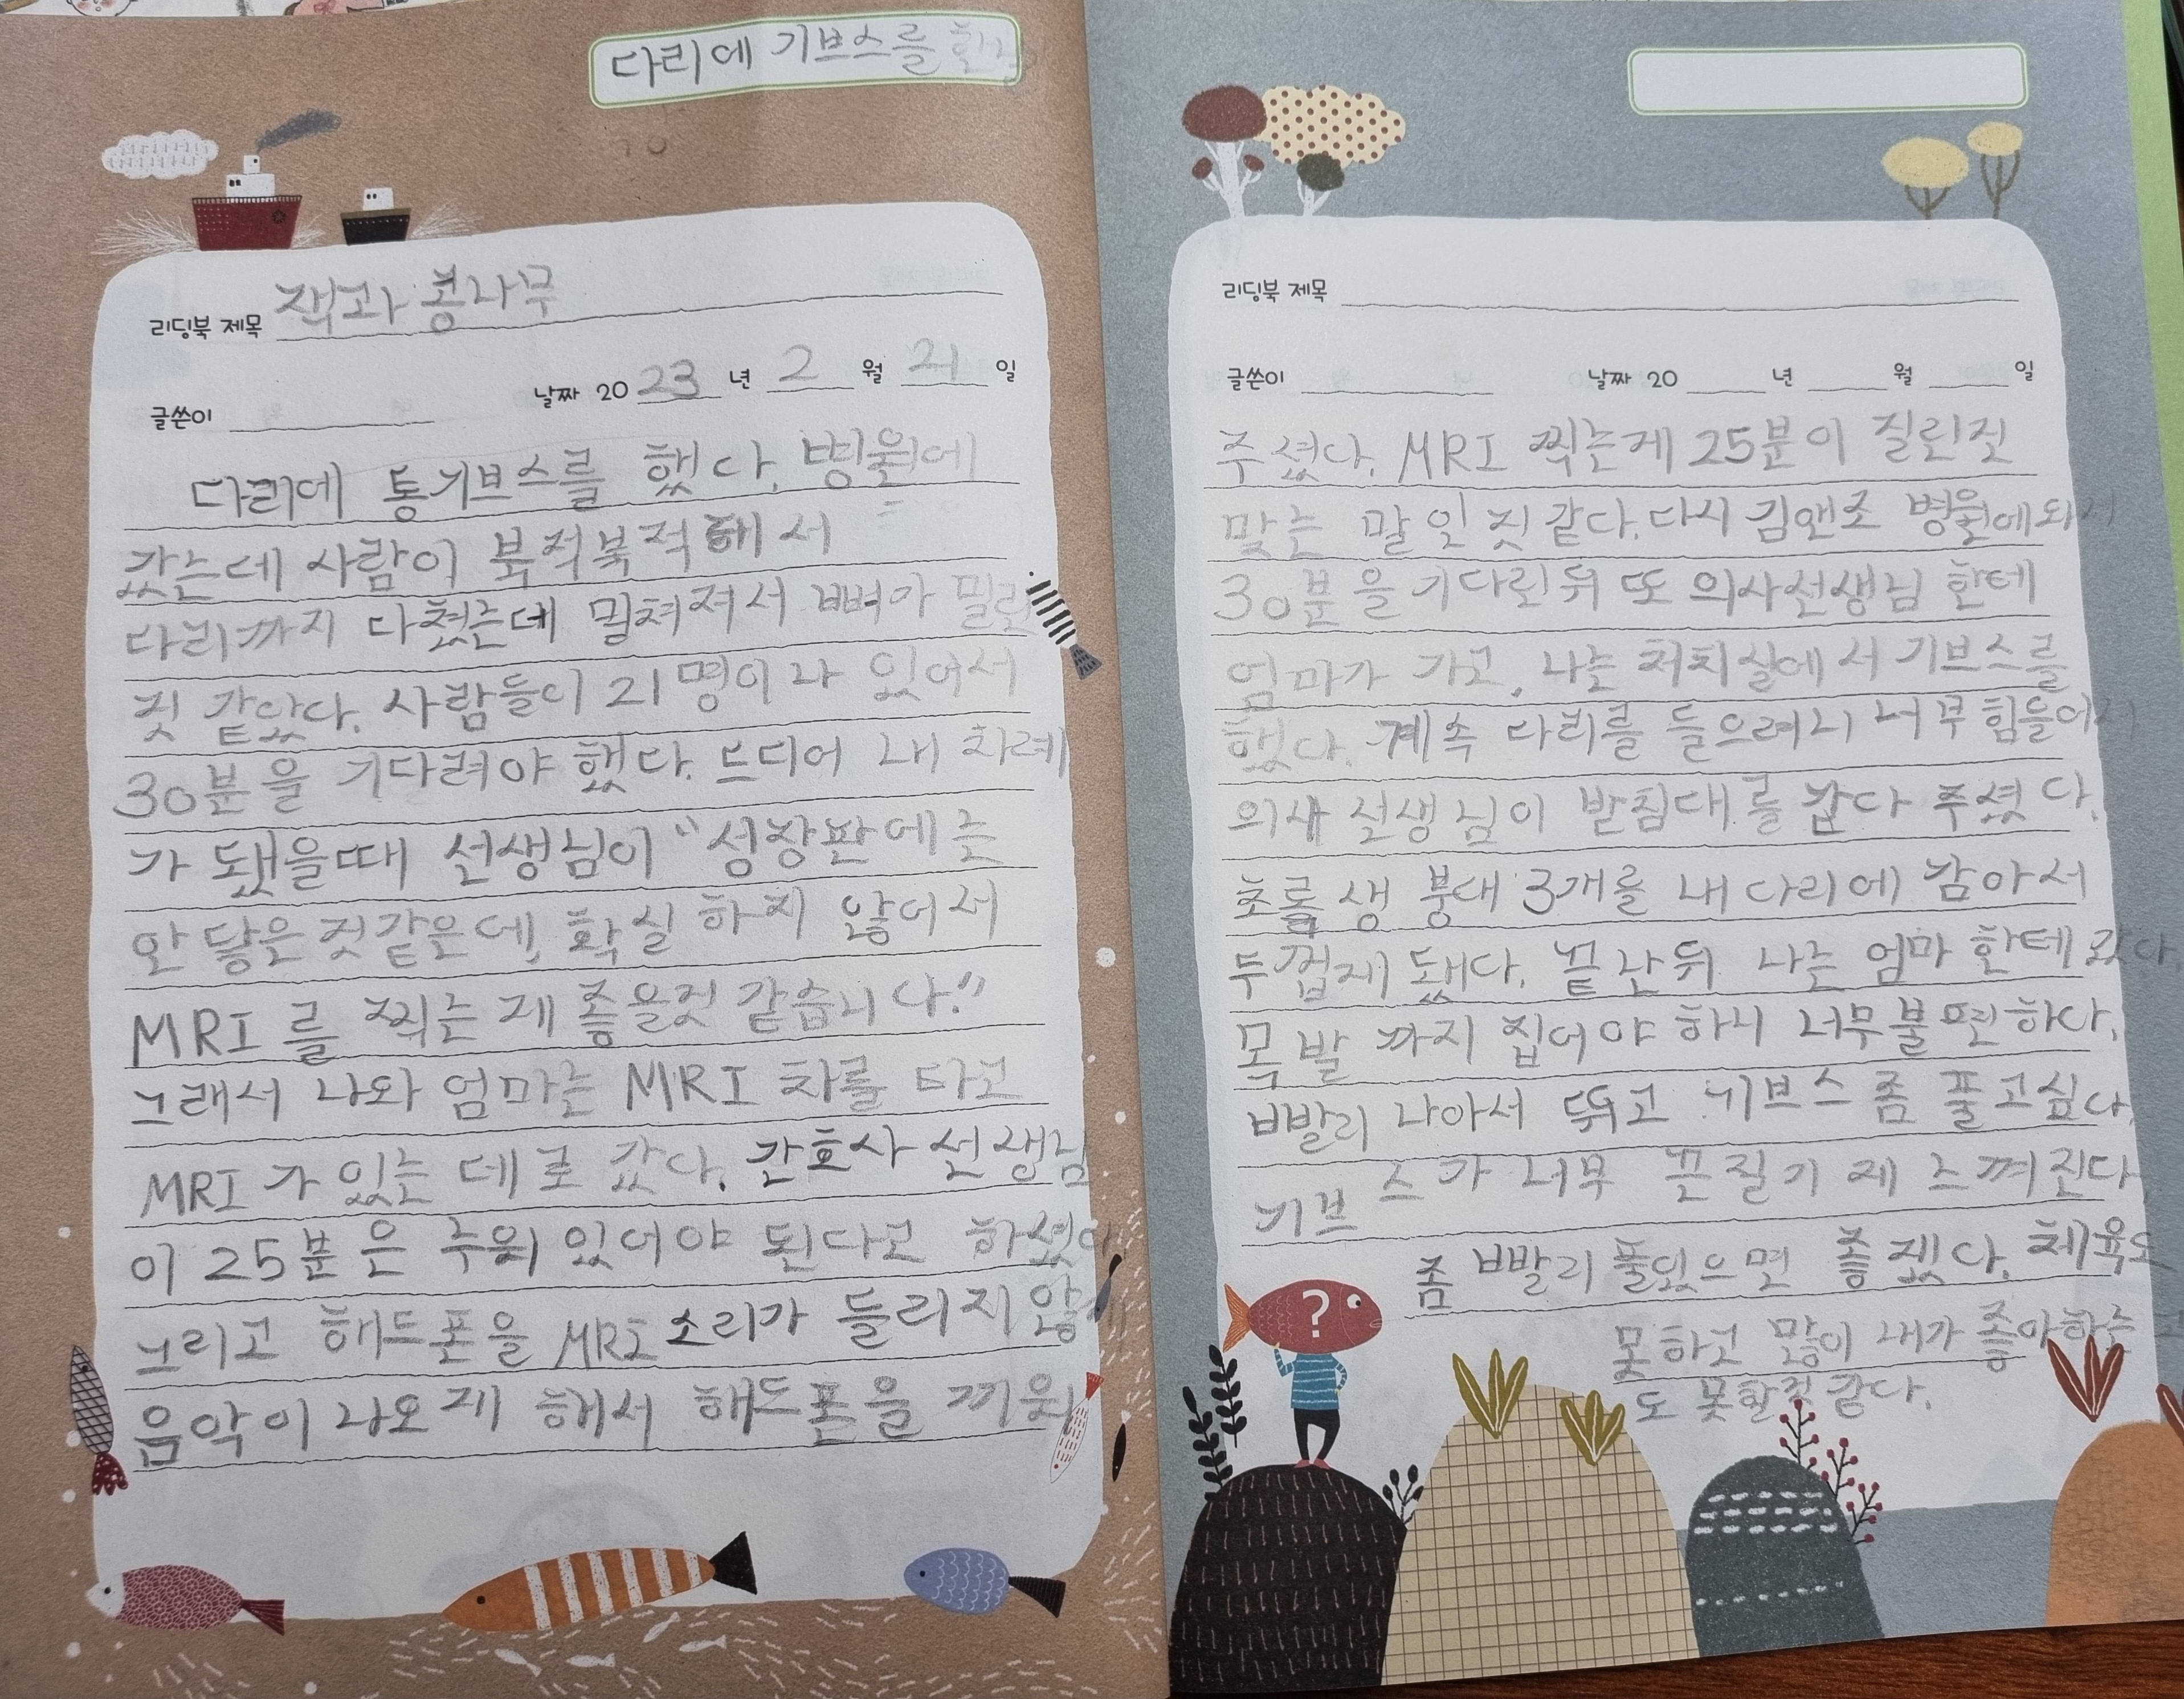 다리에 기브스를
리딩북 제목 잭과 콩나무
날짜 2023년 2월 21일
글쓴이
다리에 통기브스를 했다. 병원에
갔는데 사람이 북적북적해서
다리까지 다쳤는데 밀쳐져서 뼈가 밀린
것 같았다. 사람들이 21명이나 있어서
30분을 기다려야 했다. 드디어 내 차례
가 됐을때 선생님이 "성장판에는
안 닿은 것같은데, 확실하지 않어서
MRI를 찍는게 좋을것 같습니다."
그래서 나와 엄마는 MRI 차를 타고
MRI가 있는 데로 갔다. 간호사 선생님
이 25분은 누워 있어야 된다고 하셨다
그리고 해드폰을 MRI 소리가 들리지 않게
음악이 나오게 해서 해드폰을 끼워
리딩북 제목
글쓴이 날짜 20 년 월 일
주셨다. MRI 찍는게 25분이 질린것
맞는 말인 것 같다. 다시 김앤조 병원에 와서
30분을 기다린뒤 또 의사선생님 한테
엄마가 가고, 나는 처치실에서 기브스를
했다. 계속 다리를 들으려니 너무 힘들어서
의사 선생님이 받침대를 갖다 주셨다.
초록생 붕대 3개를 내 다리에 감아서
두껍게 됐다. 끝난뒤 나는 엄마 한테 갔다
목발까지 집어야 하니 너무불편하다.
빠발리 나아서 뛰고 기브스 좀 풀고싶다.
기브스가 너무 끈질기게 느껴진다
좀 빠발리 풀있으면 좋겠다. 체육도
못하고 많이 내가 좋아하는
도 못할것 같다.